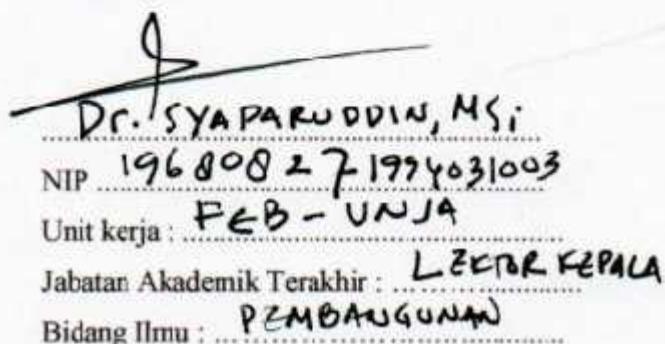 Dr. SYAPARUDDIN, MSi
NIP 19680827 1994031003
Unit kerja : FEB - UNJA
Jabatan Akademik Terakhir : LEKTOR KEPALA
Bidang Ilmu : PEMBANGUNAN